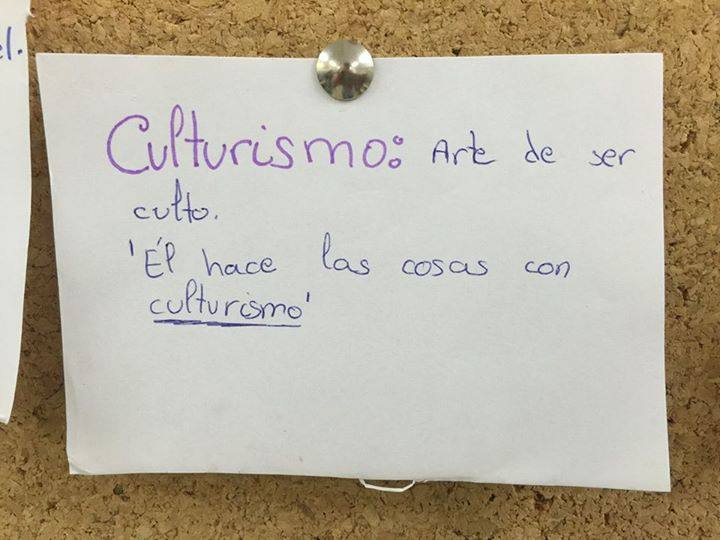 el.
Culturismo: Arte de ser
culto.
'Él hace las cosas con
culturismo'